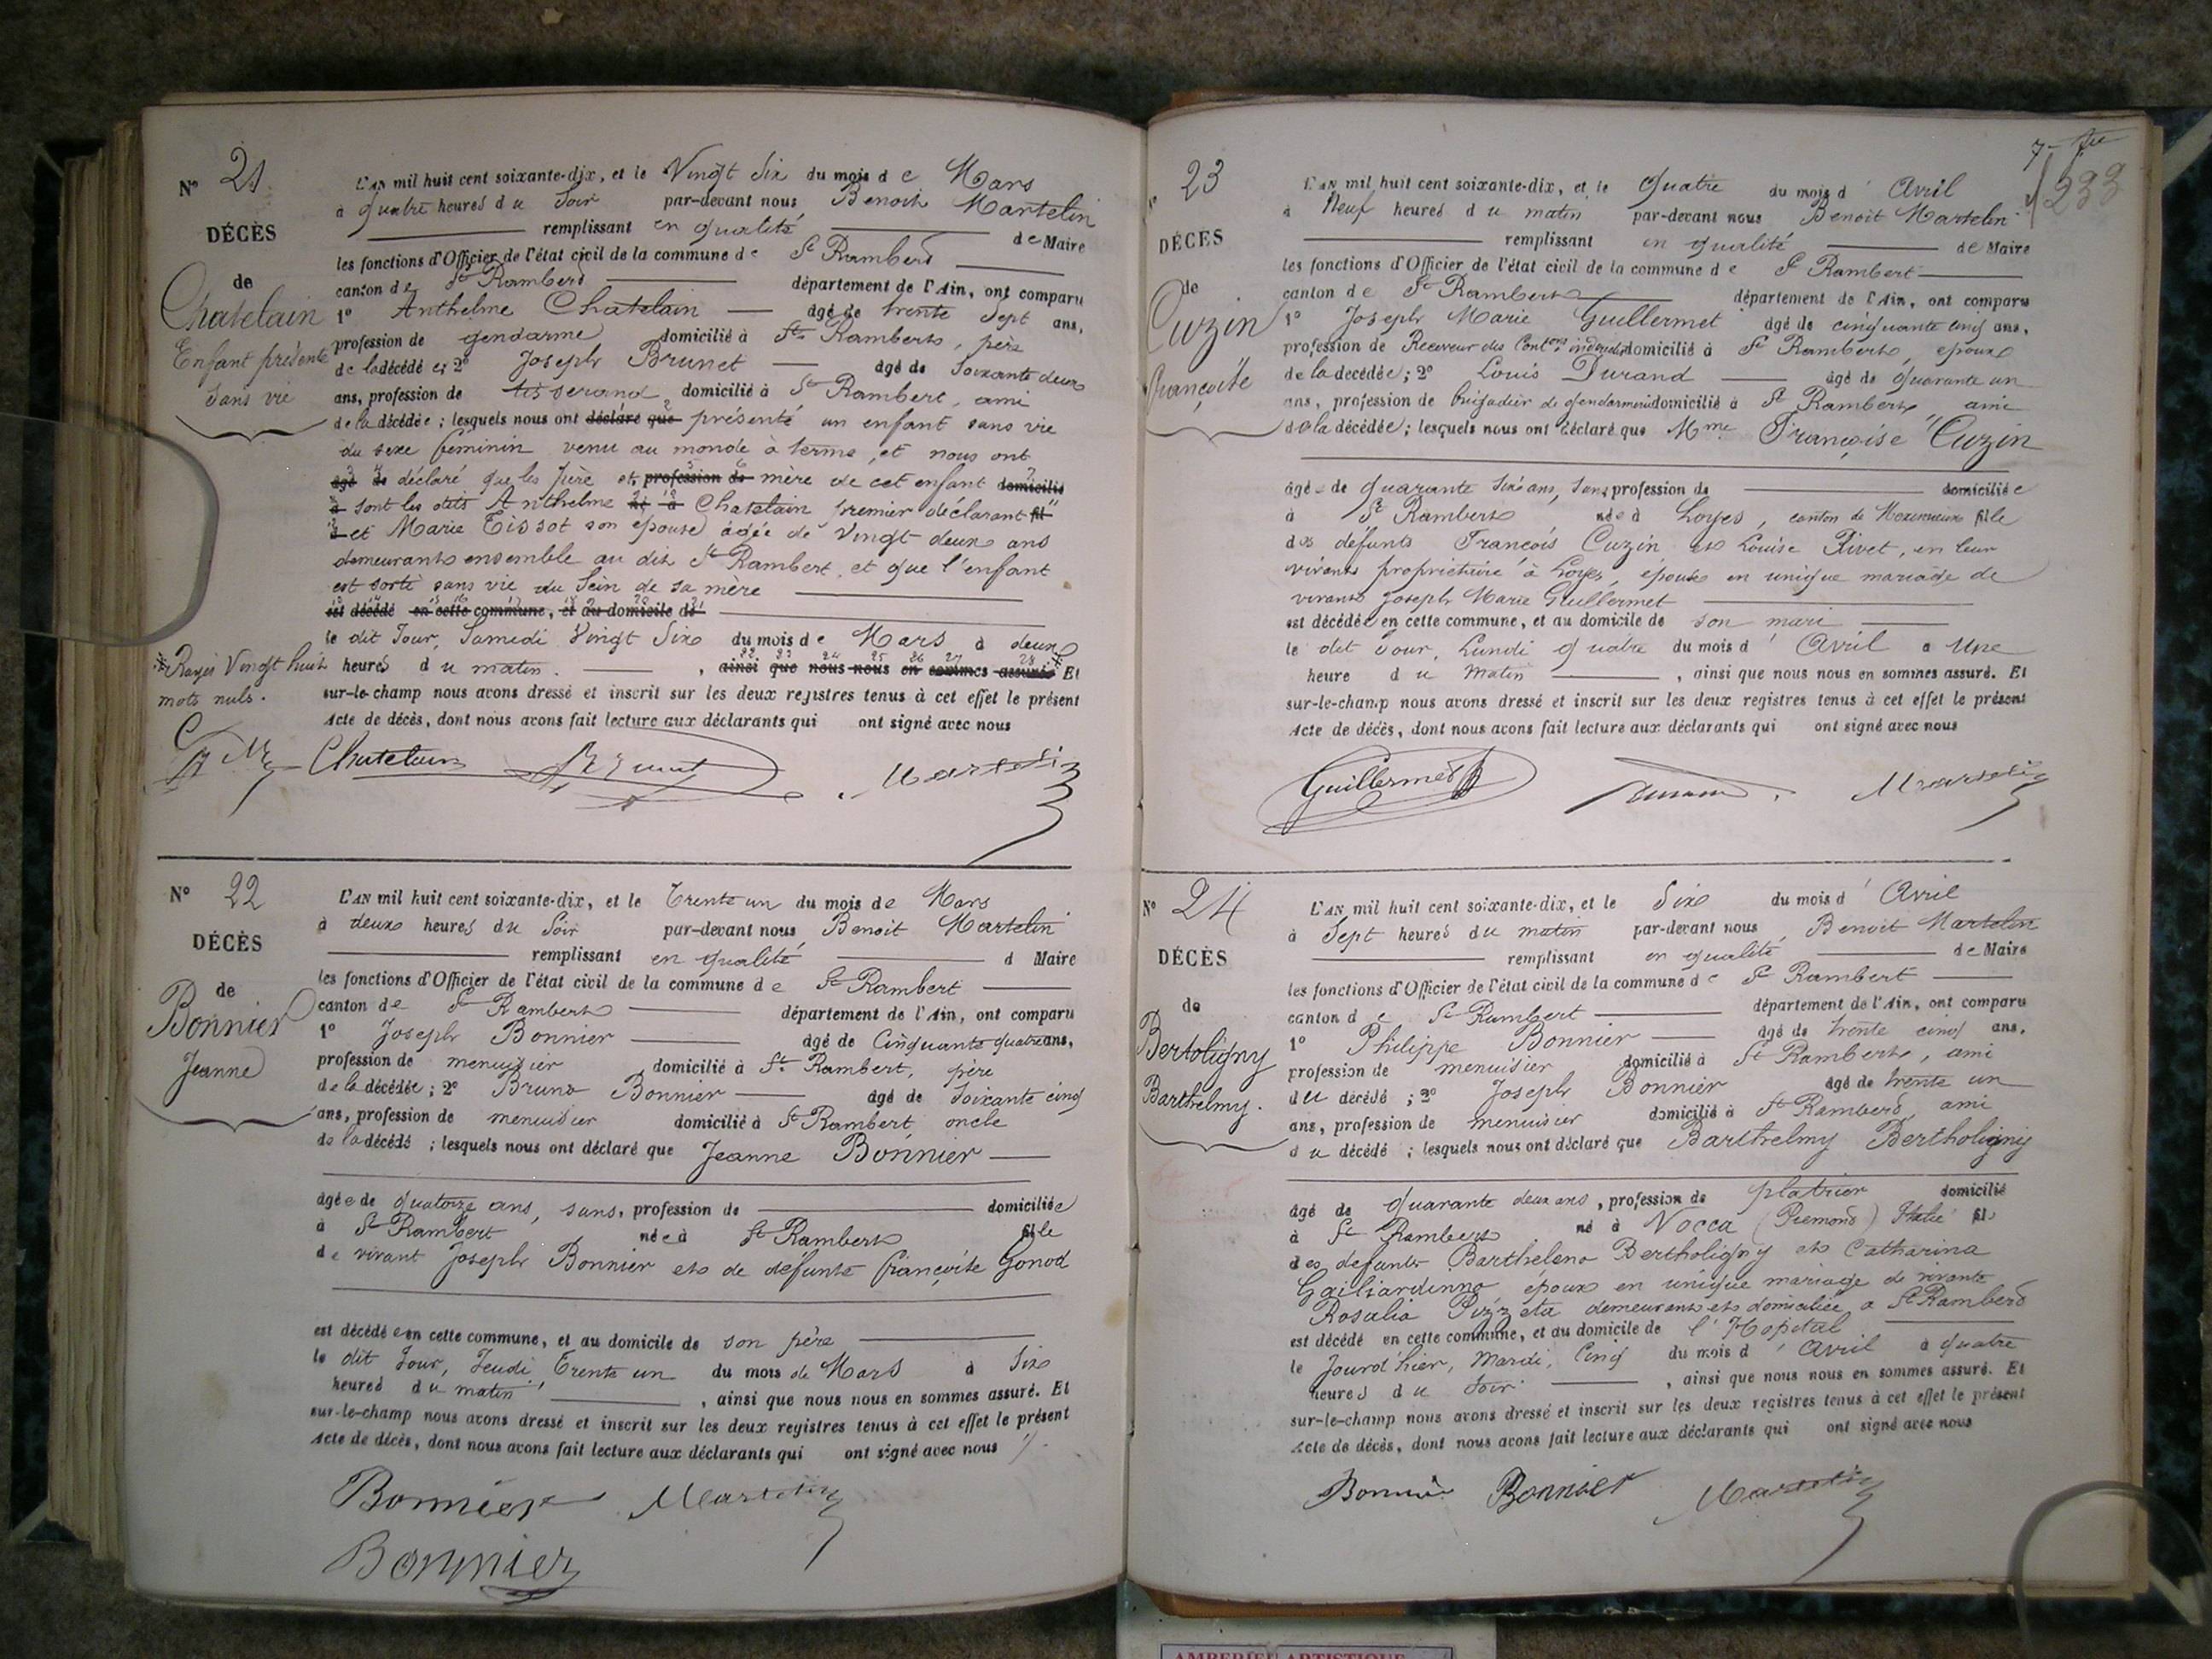 N° 21
DÉCÈS
de
Chatelain
Enfant présenté
sans vie
L'AN mil huit cent soixante-dix, et le Vingt Six du mois de Mars
à quatre heures du Soir par-devant nous Benoit Martelin
remplissant en qualité de Maire
les fonctions d'Officier de l'état civil de la commune de St Rambert
canton de St Rambert département de l'Ain, ont comparu
1° Anthelme Chatelain âgé de trente Sept ans,
profession de gendarme domicilié à St Rambert, père
de la décédé et 2° Joseph Brunet âgé de Soixante deux
ans, profession de tisserand domicilié à St Rambert, ami
de la décédée ; lesquels nous ont déclaré que présenté un enfant sans vie
du sexe féminin venu au monde à terme, et nous ont
âgé de déclaré que les père et profession de mère de cet enfant domicilié
à sont les dits Anthelme né à Chatelain premier déclarant fil
d et Marie Tissot son épouse âgée de Vingt deux ans
demeurants ensemble au dit St Rambert, et que l'enfant
est sorti sans vie du Sein de sa mère
est décédé en cette commune, et au domicile de
le dit Jour, Samedi Vingt Six du mois de Mars à deux
heures du matin. , ainsi que nous nous en sommes assuré. Et
sur-le-champ nous avons dressé et inscrit sur les deux registres tenus à cet effet le présent
Acte de décès, dont nous avons fait lecture aux déclarants qui ont signé avec nous
Rayés Vingt huit
mots nuls.
Chatelain Brunet Martelin
N° 22
DÉCÈS
de
Bonnier
Jeanne
L'AN mil huit cent soixante-dix, et le Trente un du mois de Mars
à deux heures du Soir par-devant nous Benoit Martelin
remplissant en qualité d Maire
les fonctions d'Officier de l'état civil de la commune de St Rambert
canton de St Rambert département de l'Ain, ont comparu
1° Joseph Bonnier âgé de Cinquante quatre ans,
profession de menuisier domicilié à St Rambert, père
de la décédée ; 2° Bruno Bonnier âgé de Soixante cinq
ans, profession de menuisier domicilié à St Rambert, oncle
de la décédé ; lesquels nous ont déclaré que Jeanne Bonnier
âgée de quatorze ans, sans, profession de domiciliée
à St Rambert née à St Rambert fille
de vivant Joseph Bonnier et de défunte françoise Gonod
est décédée en cette commune, et au domicile de son père
le dit Jour, Jeudi, Trente un du mois de Mars à Six
heures du matin , ainsi que nous nous en sommes assuré. Et
sur-le-champ nous avons dressé et inscrit sur les deux registres tenus à cet effet le présent
Acte de décès, dont nous avons fait lecture aux déclarants qui ont signé avec nous
Bonnier Martelin
Bonnier
233
N° 23
DÉCÈS
de
Cuzin
françoise
L'AN mil huit cent soixante-dix, et le Quatre du mois d' Avril
à Neuf heures du matin par-devant nous Benoit Martelin
remplissant en qualité de Maire
les fonctions d'Officier de l'état civil de la commune de St Rambert
canton de St Rambert département de l'Ain, ont comparu
1° Joseph Marie Guillermet âgé de cinquante cinq ans,
profession de Receveur des Contons indirectes domicilié à St Rambert, époux
de la décédée ; 2° Louis Durand âgé de quarante un
ans, profession de brigadier de gendarmerie domicilié à St Rambert, ami
de la décédée ; lesquels nous ont déclaré que Mme Françoise Cuzin
âgée de quarante six ans, sans profession de domiciliée
à St Rambert née à Loyes, canton de Meximieux fille
des défunts François Cuzin et Louise Rivet, en leur
vivants propriétaire à Loyes, épouse en unique mariage de
vivant Joseph Marie Guillermet
est décédée en cette commune, et au domicile de son mari
le dit Jour, Lundi quatre du mois d' Avril à Une
heure du Matin , ainsi que nous nous en sommes assuré. Et
sur-le-champ nous avons dressé et inscrit sur les deux registres tenus à cet effet le présent
Acte de décès, dont nous avons fait lecture aux déclarants qui ont signé avec nous
Guillermet Durand Martelin
N° 24
DÉCÈS
de
Bertoligny
Barthelmy.
L'AN mil huit cent soixante-dix, et le Six du mois d' Avril
à Sept heures du matin par-devant nous Benoit Martelin
remplissant en qualité de Maire
les fonctions d'Officier de l'état civil de la commune de St Rambert
canton de St Rambert département de l'Ain, ont comparu
1° Philippe Bonnier âgé de trente cinq ans,
profession de menuisier domicilié à St Rambert, ami
du décédé ; 2° Joseph Bonnier âgé de trente un
ans, profession de menuisier domicilié à St Rambert, ami
du décédé ; lesquels nous ont déclaré que Barthelmy Bertholigny
âgé de quarante deux ans, profession de platrier domicilié
à St Rambert né à Nocca (Piemond) Italie fils
des defunts Bartheleno Bertholigny et Catharina
Gailiardinno époux en unique mariage de vivante
Rosalia Pizzeta demeurant et domiciliée à St Rambert
est décédé en cette commune, et au domicile de l'Hopital
le Jourd'hier, Mardi, Cinq du mois d' Avril à quatre
heures du Soir , ainsi que nous nous en sommes assuré. Et
sur-le-champ nous avons dressé et inscrit sur les deux registres tenus à cet effet le présent
Acte de décès, dont nous avons fait lecture aux déclarants qui ont signé avec nous
Bonnier Bonnier Martelin
AMBERIEU ARTISTIQUE